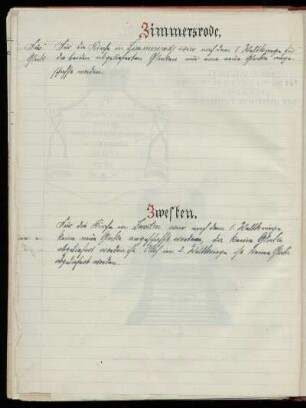 Zimmersrode.
Für die Kirche in Zimmersrode war nach dem 1. Weltkriege für
die beiden abgelieferten Glocken nur eine neue Glocke ange-
schafft worden.
Zwesten.
Für die Kirche in Zwesten war nach dem 1. Weltkriege
keine neue Glocke angeschafft worden, da keine Glocke
abgeliefert worden ist. Auch im 2. Weltkriege ist keine Glocke
abgeliefert worden.